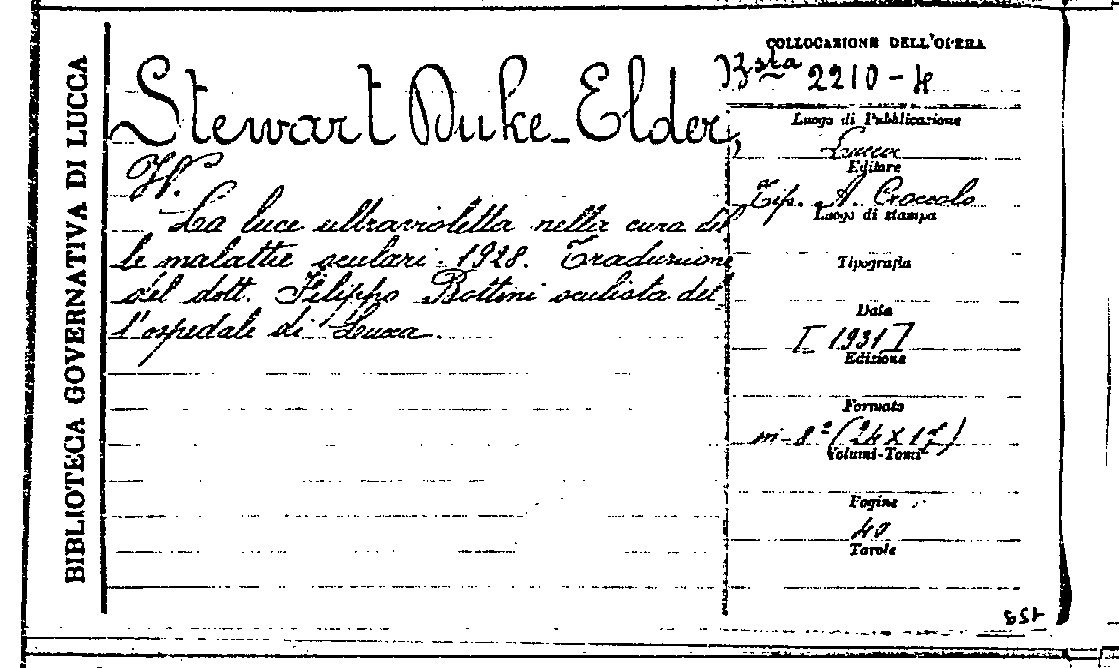 BIBLIOTECA GOVERNATIVA DI LUCCA
Stewart Duke-Elder,
W.
La luce ultravioletta nella cura del
le malattie oculari. 1928. Traduzione
del dott. Filippo Bottini oculista del
l'ospedale di Lucca.
COLLOCAZIONE DELL'OPERA
Bsta 2210-4
Luogo di Pubblicazione
Lucca
Editore
Tip. A. Croccolo
Luogo di stampa
Tipografia
Data
[1931]
Edizione
Formato
in-8º (24 X 17)
Volumi-Tomi
Pagine
40
Tavole